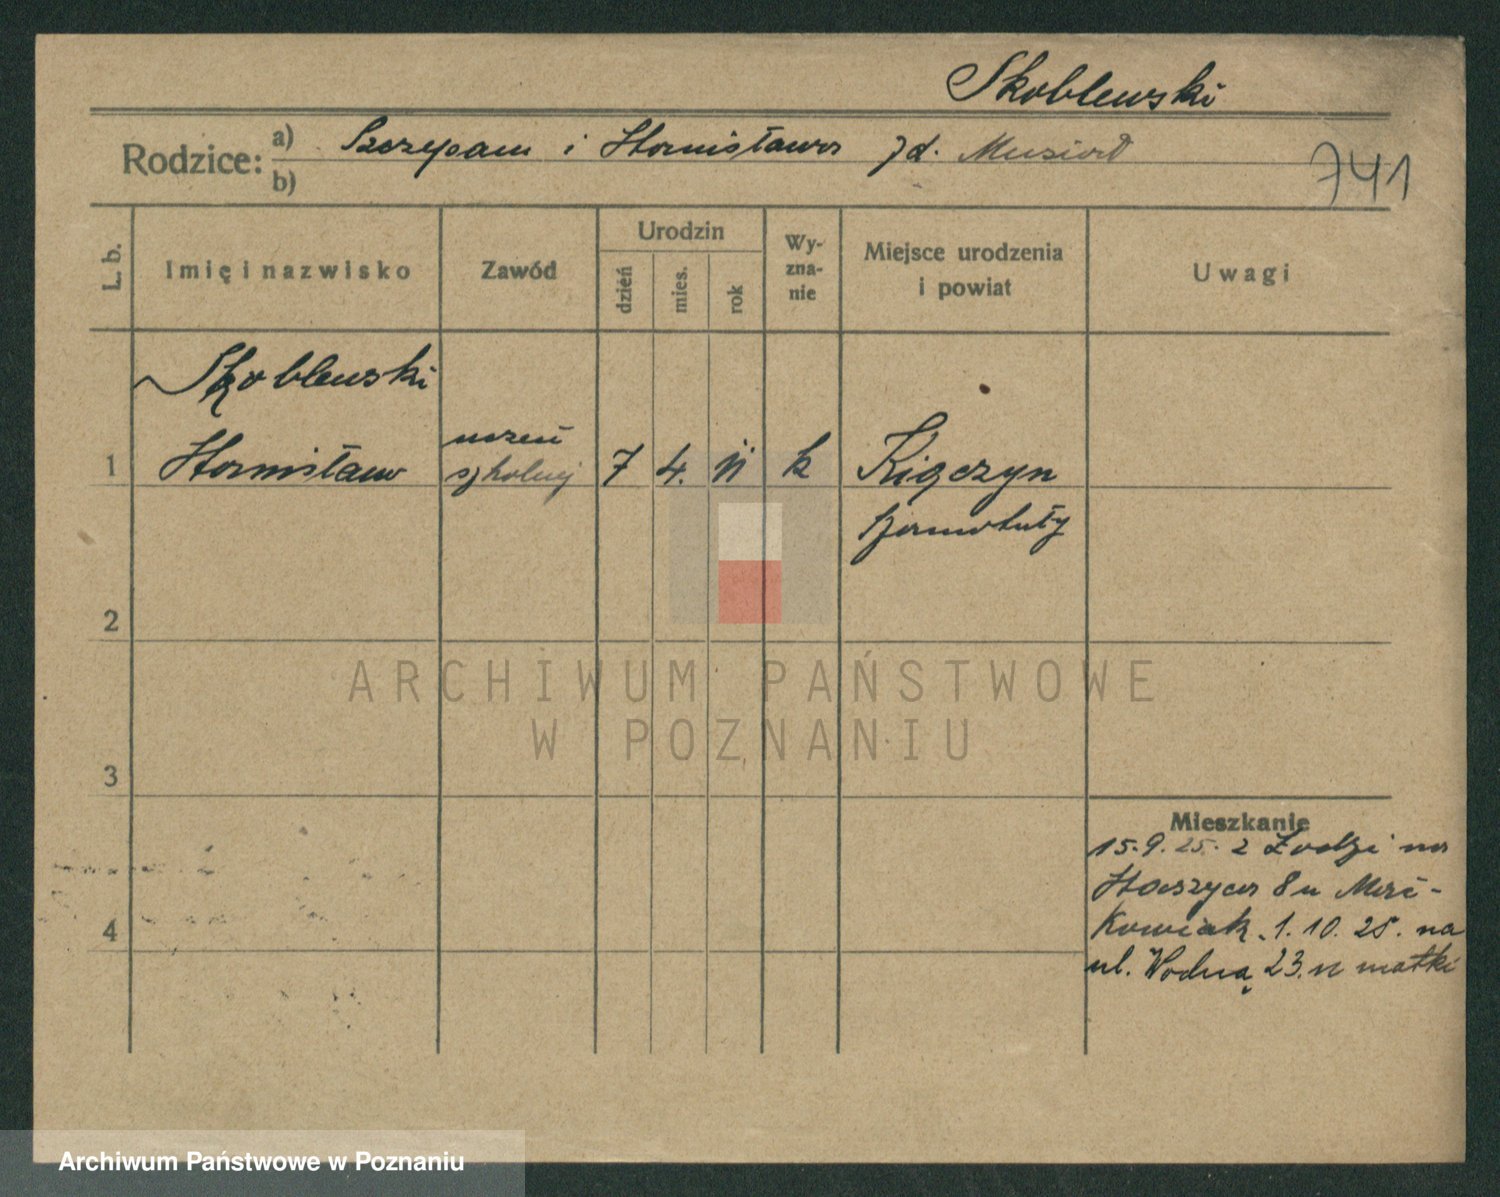 Skoblewski
Rodzice: a) Szczepan i Stanisława zd. Musioł
b)
741
L. b.
Imię i nazwisko
Zawód
Urodzin
dzień
mies.
rok
Wy-
zna-
nie
Miejsce urodzenia
i powiat
Uwagi
Skoblewski
1 Stanisław
uczeń
szkolnej
7 4. 11 k
Kiączyn
Szamotuły
2
3
4
Mieszkanie
15.9.25. z Łodzi na
Staszyca 8 u
kowiak. 1. 10. 25. na
ul. Wodną 23. u matki
ARCHIWUM PAŃSTWOWE
W POZNANIU
Archiwum Państwowe w Poznaniu